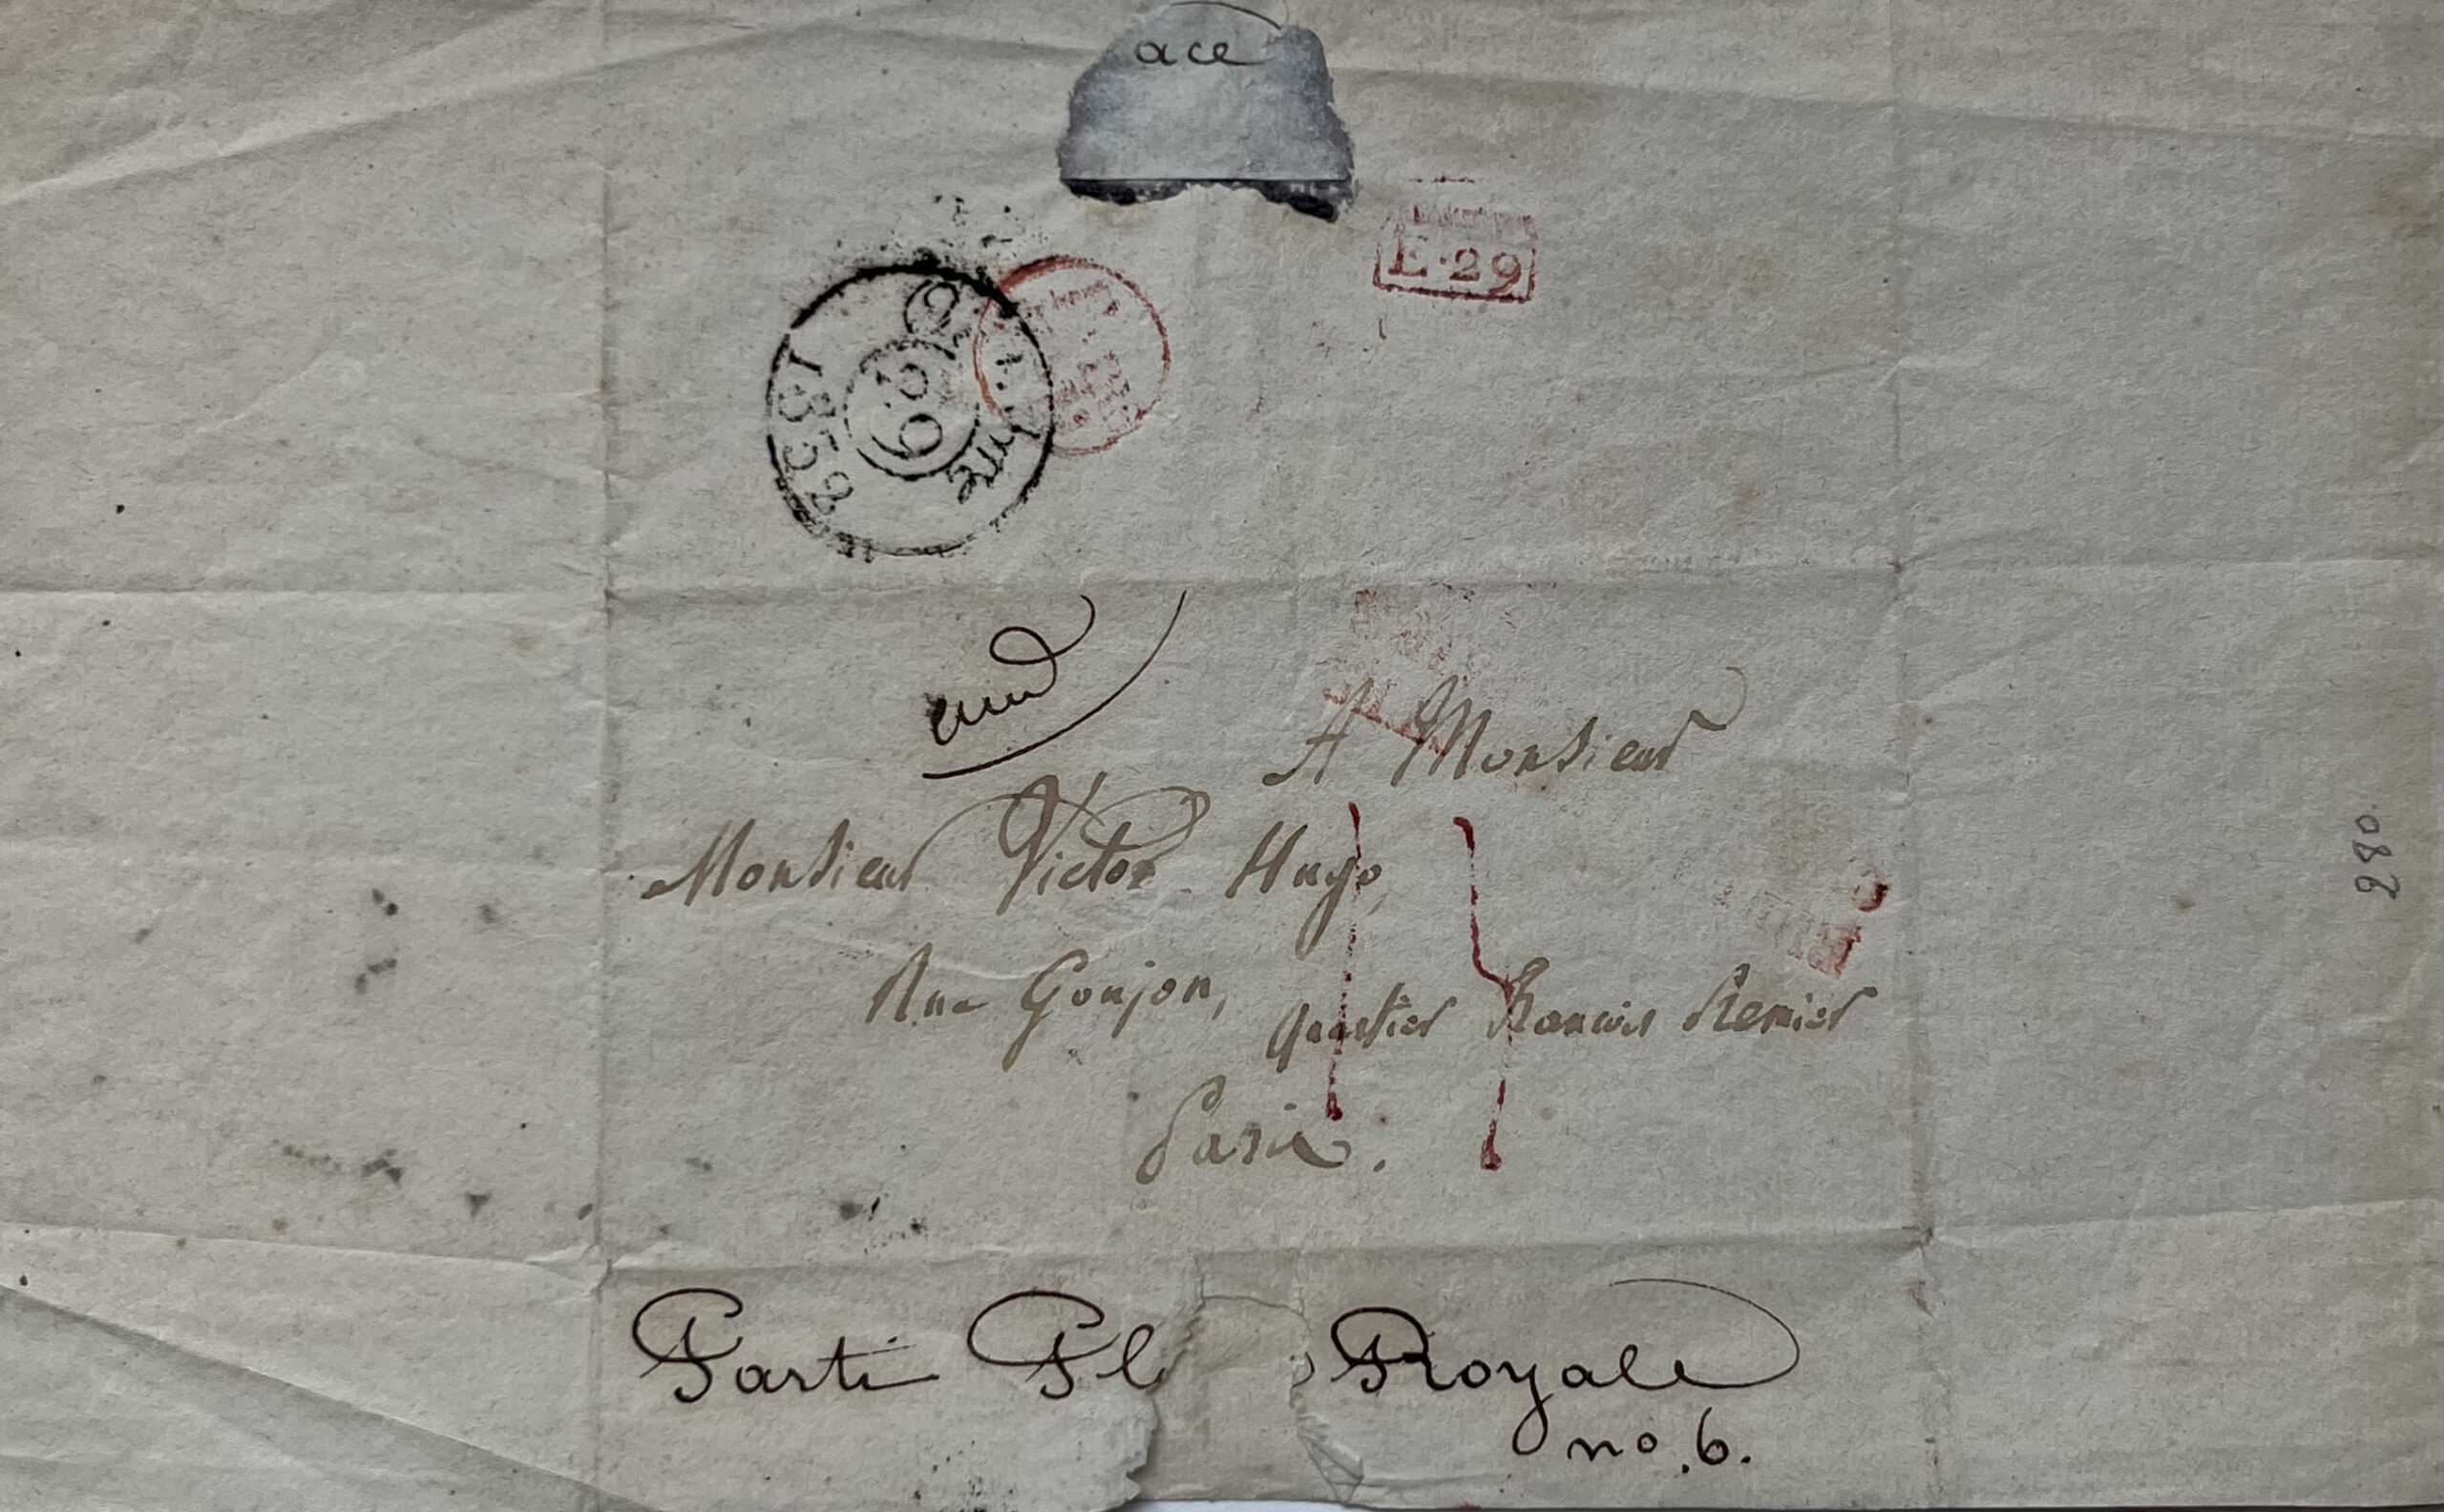 ace
E·29
1832
29
A Monsieur
Monsieur Victor Hugo,
Rue Goujon, quartier
Paris.
Parti Pl Royale
no. 6.
280